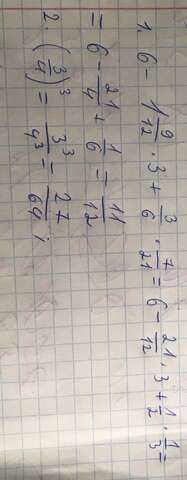 1. 6 - 1 9/12 · 3 + 3/6 · 7/21 = 6 - 21/12 · 3 + 1/2 · 1/3 =
= 6 - 21/4 + 1/6 = 11/12
2. (3/4)³ = 3³/4³ = 27/64 ;